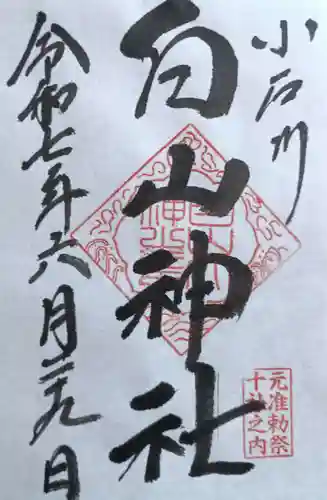 小石川
白山神社
令和七年六月二九日
元准勅祭
十社之内